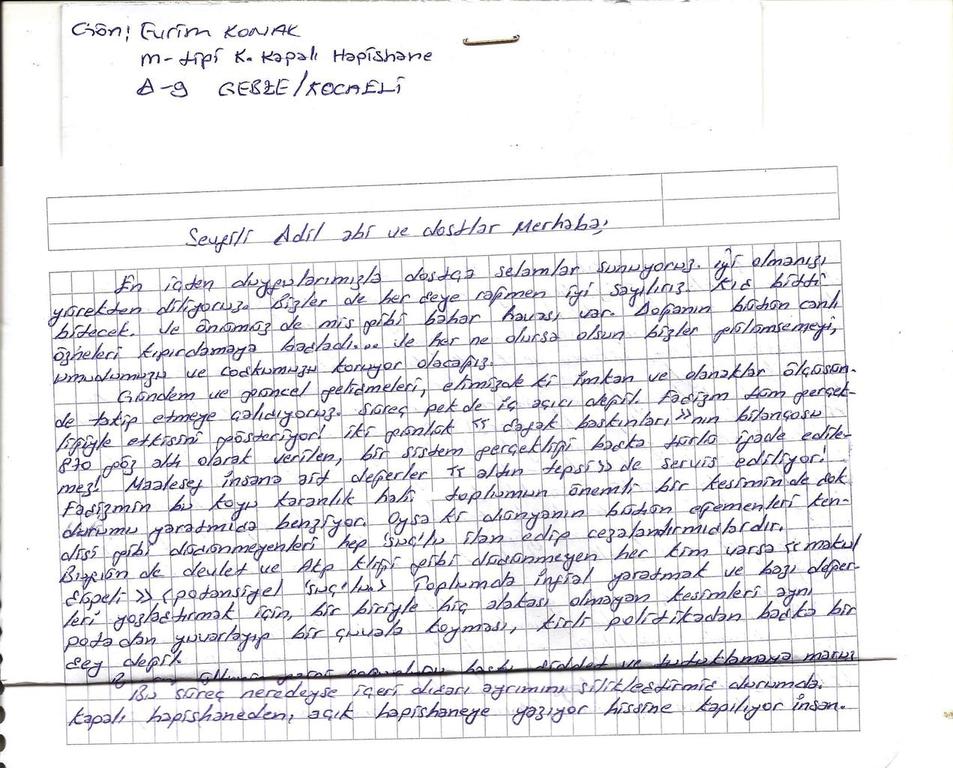 Gön: Evrim KONAK
m-tipi K. Kapalı Hapishane
A-9 GEBZE/KOCAELİ
Sevgili Adil abi ve dostlar Merhaba;
En içten duygularımızla dostça selamlar sunuyoruz. iyi olmanızı
yürekten diliyoruz. Bizler de her şeye rağmen iyi sayılırız. Kış bitti
bitecek. Ve önümüz de mis gibi bahar havası var. Doğanın bütün canlı
özneleri kıpırdamaya başladı... ve her ne olursa olsun bizler gülümsemeyi,
umudumuzu ve coşkumuzu koruyor olacağız.
Gündem ve güncel gelişmeleri, elimizde ki imkan ve olanaklar ölçüsün-
de takip etmeye çalışıyoruz. Süreç pek de iç açıcı değil. Faşizm tüm gerçek-
liğiyle etkisini gösteriyor! iki günlük << şafak baskınları >>nın bilançosu
870 göz altı olarak verilen, bir sistem gerçekliği başka türlü ifade edile-
mez! Maalesef insana ait değerler << altın tepsi >> de servis ediliyor!
Faşizmin bu koyu karanlık hali toplumun önemli bir kesimin de şok
durumu yaratmışa benziyor. Oysa ki dünyanın bütün egemenleri ken-
disi gibi düşünmeyenleri hep 'suç'lu ilan edip cezalandırmışlardır.
Bugün de devlet ve Akp kliği gibi düşünmeyen her kim varsa << makul
şüpeli >> (potansiyel 'suç'lu.) Toplumda infial yaratmak ve bazı değer-
leri yozlaştırmak için, bir biriyle hiç alakası olmayan kesimleri aynı
potadan yuvarlayıp bir çuvala koyması, kirli politikadan başka bir
şey değil.
baskı şiddet ve tutuklamaya maruz
Bu süreç neredeyse içeri dışarı ayrımını silikleştirmiş durumda.
Kapalı hapishaneden, açık hapishaneye yazıyor hissine kapılıyor insan.